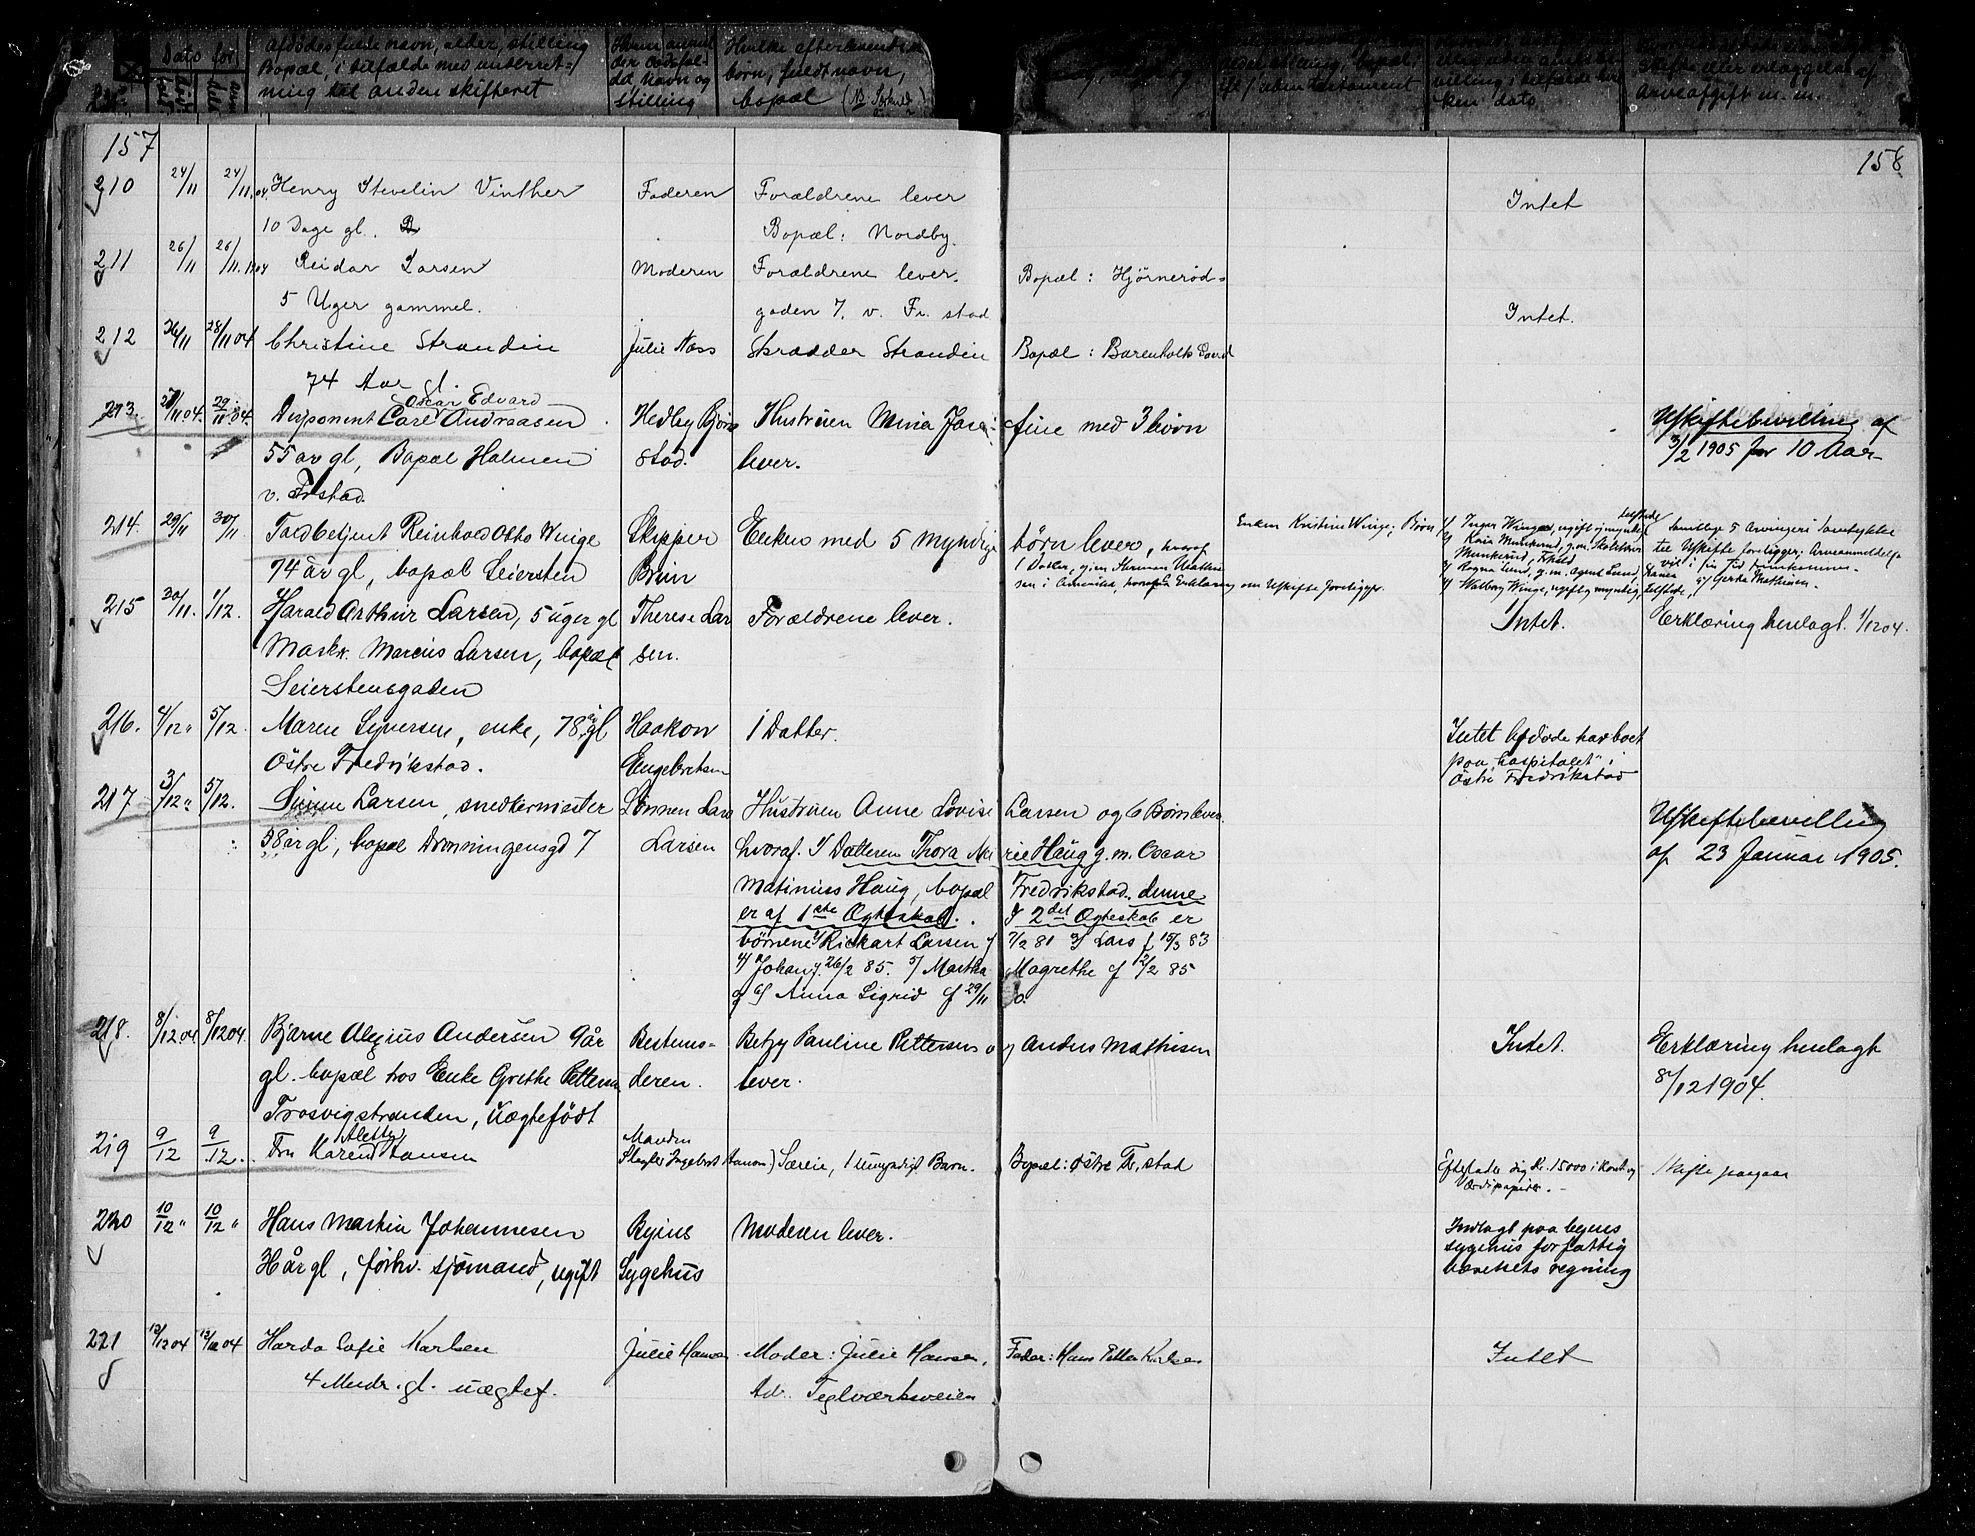 Dato for
Afdødes fulde navn, alder, stilling
Bopæl, i tilfælde med underret-
ning til anden skifteret
Hvem anmel
der dødsfal-
det, navn og
stilling
Hvilke efterlevende
børn, fuldt navn,
bopæl
uden testament
ken dato
Skifte eller erlæggelse af
Arveafgift m. m.
157
158
210 24/11 24/11.04 Henry Stevelin Vinther Faderen Forældrene lever Intet
10 Dage gl. Bopæl: Nordby.
211 26/11 26/11.1904 Reidar Larsen Moderen Forældrene lever. Bopæl: Hjørnerød-
5 Uger gammel. gaden 7. v. Fr. stad Intet.
212 26/11 28/11 04 Christine Strandin Julie Næss Skrædder Strandin Bopæl: Barenholts Gaard
74 Aar gl.
Oscar Edvard
213. 29/11.04. Disponent Carl Andreasen Hedley Bjørn Hustruen Mina Jose- fine med 3 børn Uskiftebevilling af
55 år gl, Bopæl Holmen stad. lever. 3/2 1905 for 10 Aar
v. Frstad.
214. 29/11 30/11 Toldbetjent Reinhold Otto Winge Skipper Enkus med 5 myndige børn lever, hvoraf Enken Kristine Winge; Børn 1/ Inger Winge, ugift, myndig, Samtlige 5 Arvingers Samtykke
74 år gl, bopæl Seiersten Bruun 1 Datter, gjen Herman Mathi- sen i Amerika, Erklæring om Uskifte foreligger. til Uskifte foreligger; Arveanmeldelse
Munkerud, Frstad vil i sin Tid fremkomme.
3/ Ragna Lund, g.m. Agent Lund,
4/ Walborg Winge, ugift, myndig, 5/ Gerda Mathisen.
215 30/11. 1/12. Harald Arthur Larsen, 5 uger gl Therese Lar Forældrene lever. Intet. Erklæring henlagt 1/12 04.
Mask. Marcus Larsen, bopæl sen.
Seierstensgaden
216. 4/12" 5/12. Maren Syversen, enke, 78 år gl Haakon 1 Datter. Intet Afdøde har boet
Østre Fredrikstad. Engebretsen paa "hospitalet" i
Østre Fredrikstad
217 3/12" 5/12. Larsen, snedkermester Sønnen Lars Hustruen Anne Lovise Larsen og 6 Børn lever. Uskiftebevilling
58 år gl, bopæl Dronningensgd 7 Larsen hvoraf 1/ Datteren Thora Ma rie Haug g. m. Oscar af 23 Januar 1905.
Matinius Haug, bopæl Fredrikstad. denne
er af 1ste Ægteskab. I 2det Ægteskab er
børnene 2/ Rickart Larsen f 7/2 81 3/ Lars f 15/3 83
4/ Johan f. 26/2 85. 5/ Martha Magrethe f 2/2 85
og 6/ Anna Sigrid f 29/11
218. 8/12 04 8/12 04. Bjarne Alexius Andersen 9 år Bestemo- Betzy Pauline Pettersen og Anders Mathisen Intet. Erklæring henlagt
gl. bopæl hos Enke Grethe Pettersen deren. lever. 8/12 1904.
Trosvigstranden, Uægtefødt
219 9/12 9/12. Fru Karen Alette Hansen Manden
Slagter Ingebret Hanson) Særeie, 1 umyndigt Barn. Bopæl: Østre Fr. stad Efterlader sig Kr. 15000 i Kont. og Skifte paagaar
Værdipapirer.-
220 10/12" 10/12" Hans Martin Johannesen Byens Moderen lever. Indlagt paa byens
31 år gl, førhv. sjømand, ugift Sygehus sygehus for fattig
væsenets regning
221 12/12 04 13/12 04 Harda Sofie Karlsen Julie Hansen Moder: Julie Hansen, Fader: Hans Petter Karlsen Intet
4 Mndr. gl. uægtef. Ad. Teglværksveien